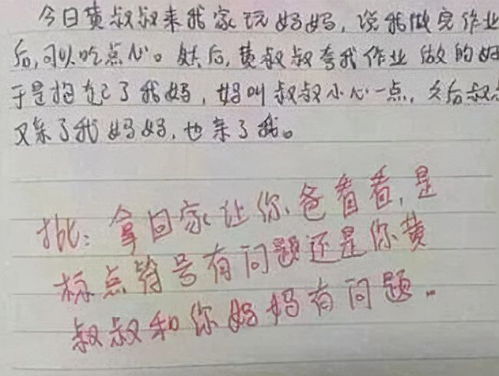 今日黄叔叔来我家玩妈妈，说我做完作业
后，可以吃点心。然后，黄叔叔夸我作业做的好
于是抱起了我妈，妈叫叔叔小心一点，之后叔
又亲了我妈妈，也亲了我。
批：拿回家让你爸看看，是
标点符号有问题还是你黄
叔叔和你妈妈有问题。